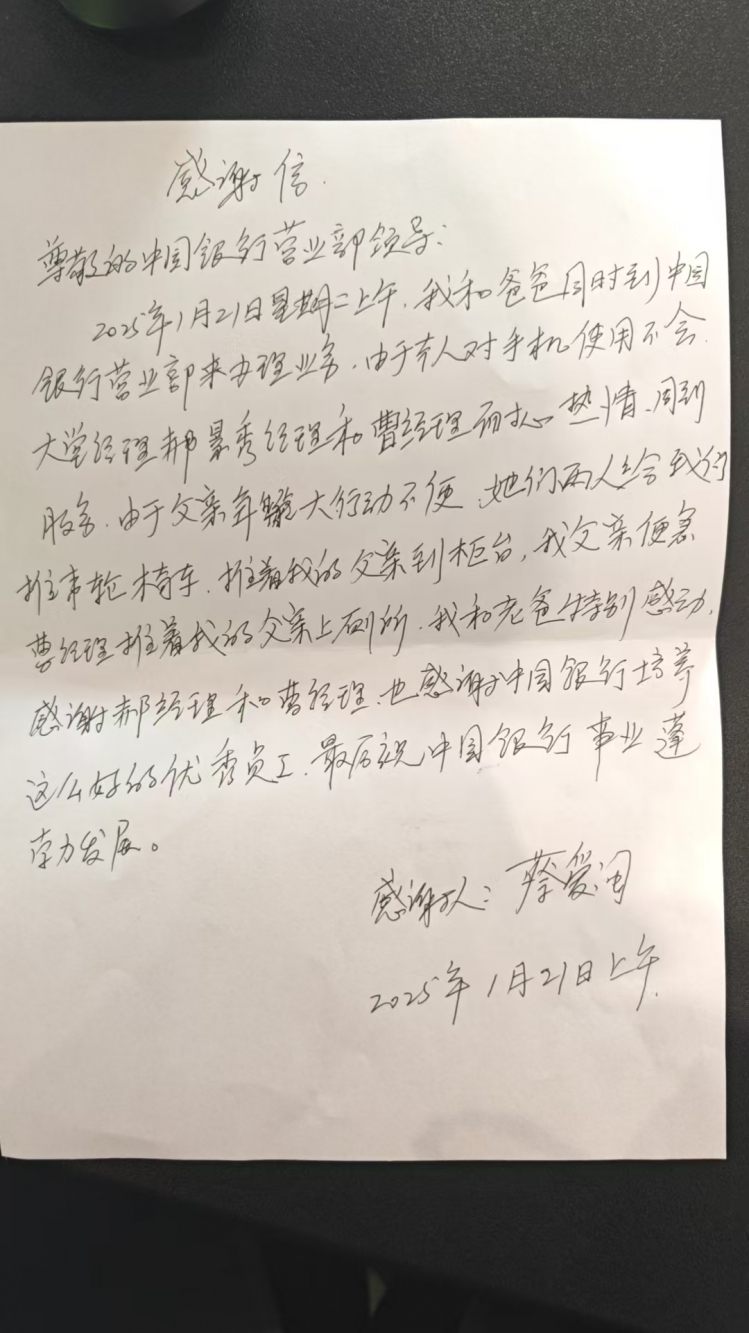 感谢信.
尊敬的中国银行营业部领导:
2025年1月21日星期二上午.我和爸爸同时到中国
银行营业部来办理业务.由于本人对手机使用不会.
大堂经理郝景秀经理和曹经理耐心热情、周到
服务.由于父亲年龄大行动不便、她们两人给我们
推来轮椅车.推着我的父亲到柜台,我父亲便急
曹经理推着我的父亲上厕所.我和老爸特别感动.
感谢郝经理和曹经理.也感谢中国银行培养
这么好的优秀员工.最后祝中国银行事业蓬
勃发展。
感谢人:蔡爱
2025年1月21日上午.